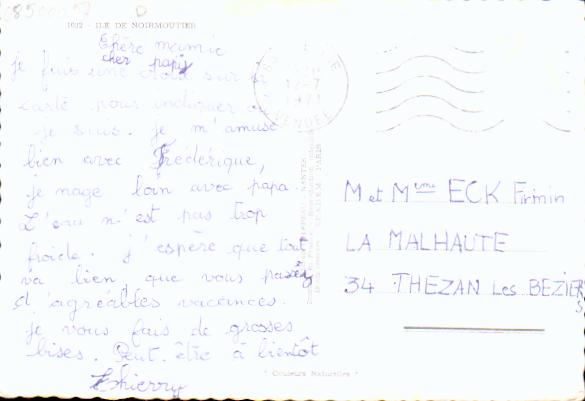 1032 - ILE DE NOIRMOUTIER
Chère mamie
cher papy
je fais une croix sur la
carte pour indiquer où
je suis. je m'amuse
bien avec Frédérique,
je nage loin avec papa.
L'eau n'est pas trop
froide. j'espère que tout
va bien, que vous passez
d'agréables vacances.
je vous fais de grosses
bises. Peut être à bientôt
Thierry
12-7
VENDÉE
M et Mème ECK Firmin
LA MALHAUTE
34 THEZAN Les BEZIERS
"Couleurs Naturelles"